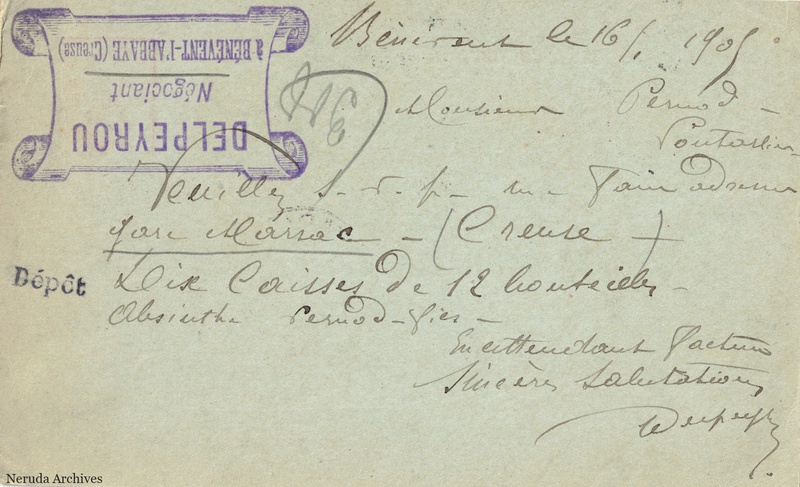 DELPEYROU
Négociant
à BÉNÉVENT-l'ABBAYE (Creuse)
Bénévent le 16/1 1905
Monsieur Pernod -
Pontarlier
Veuillez s. v. p. me faire adresser
gare Marsac - (Creuse)
Dépôt
Dix Caisses de 12 bouteilles -
Absinthe Pernod-fils -
En attendant facture
Sincères Salutations
Delpeyrou
Neruda Archives